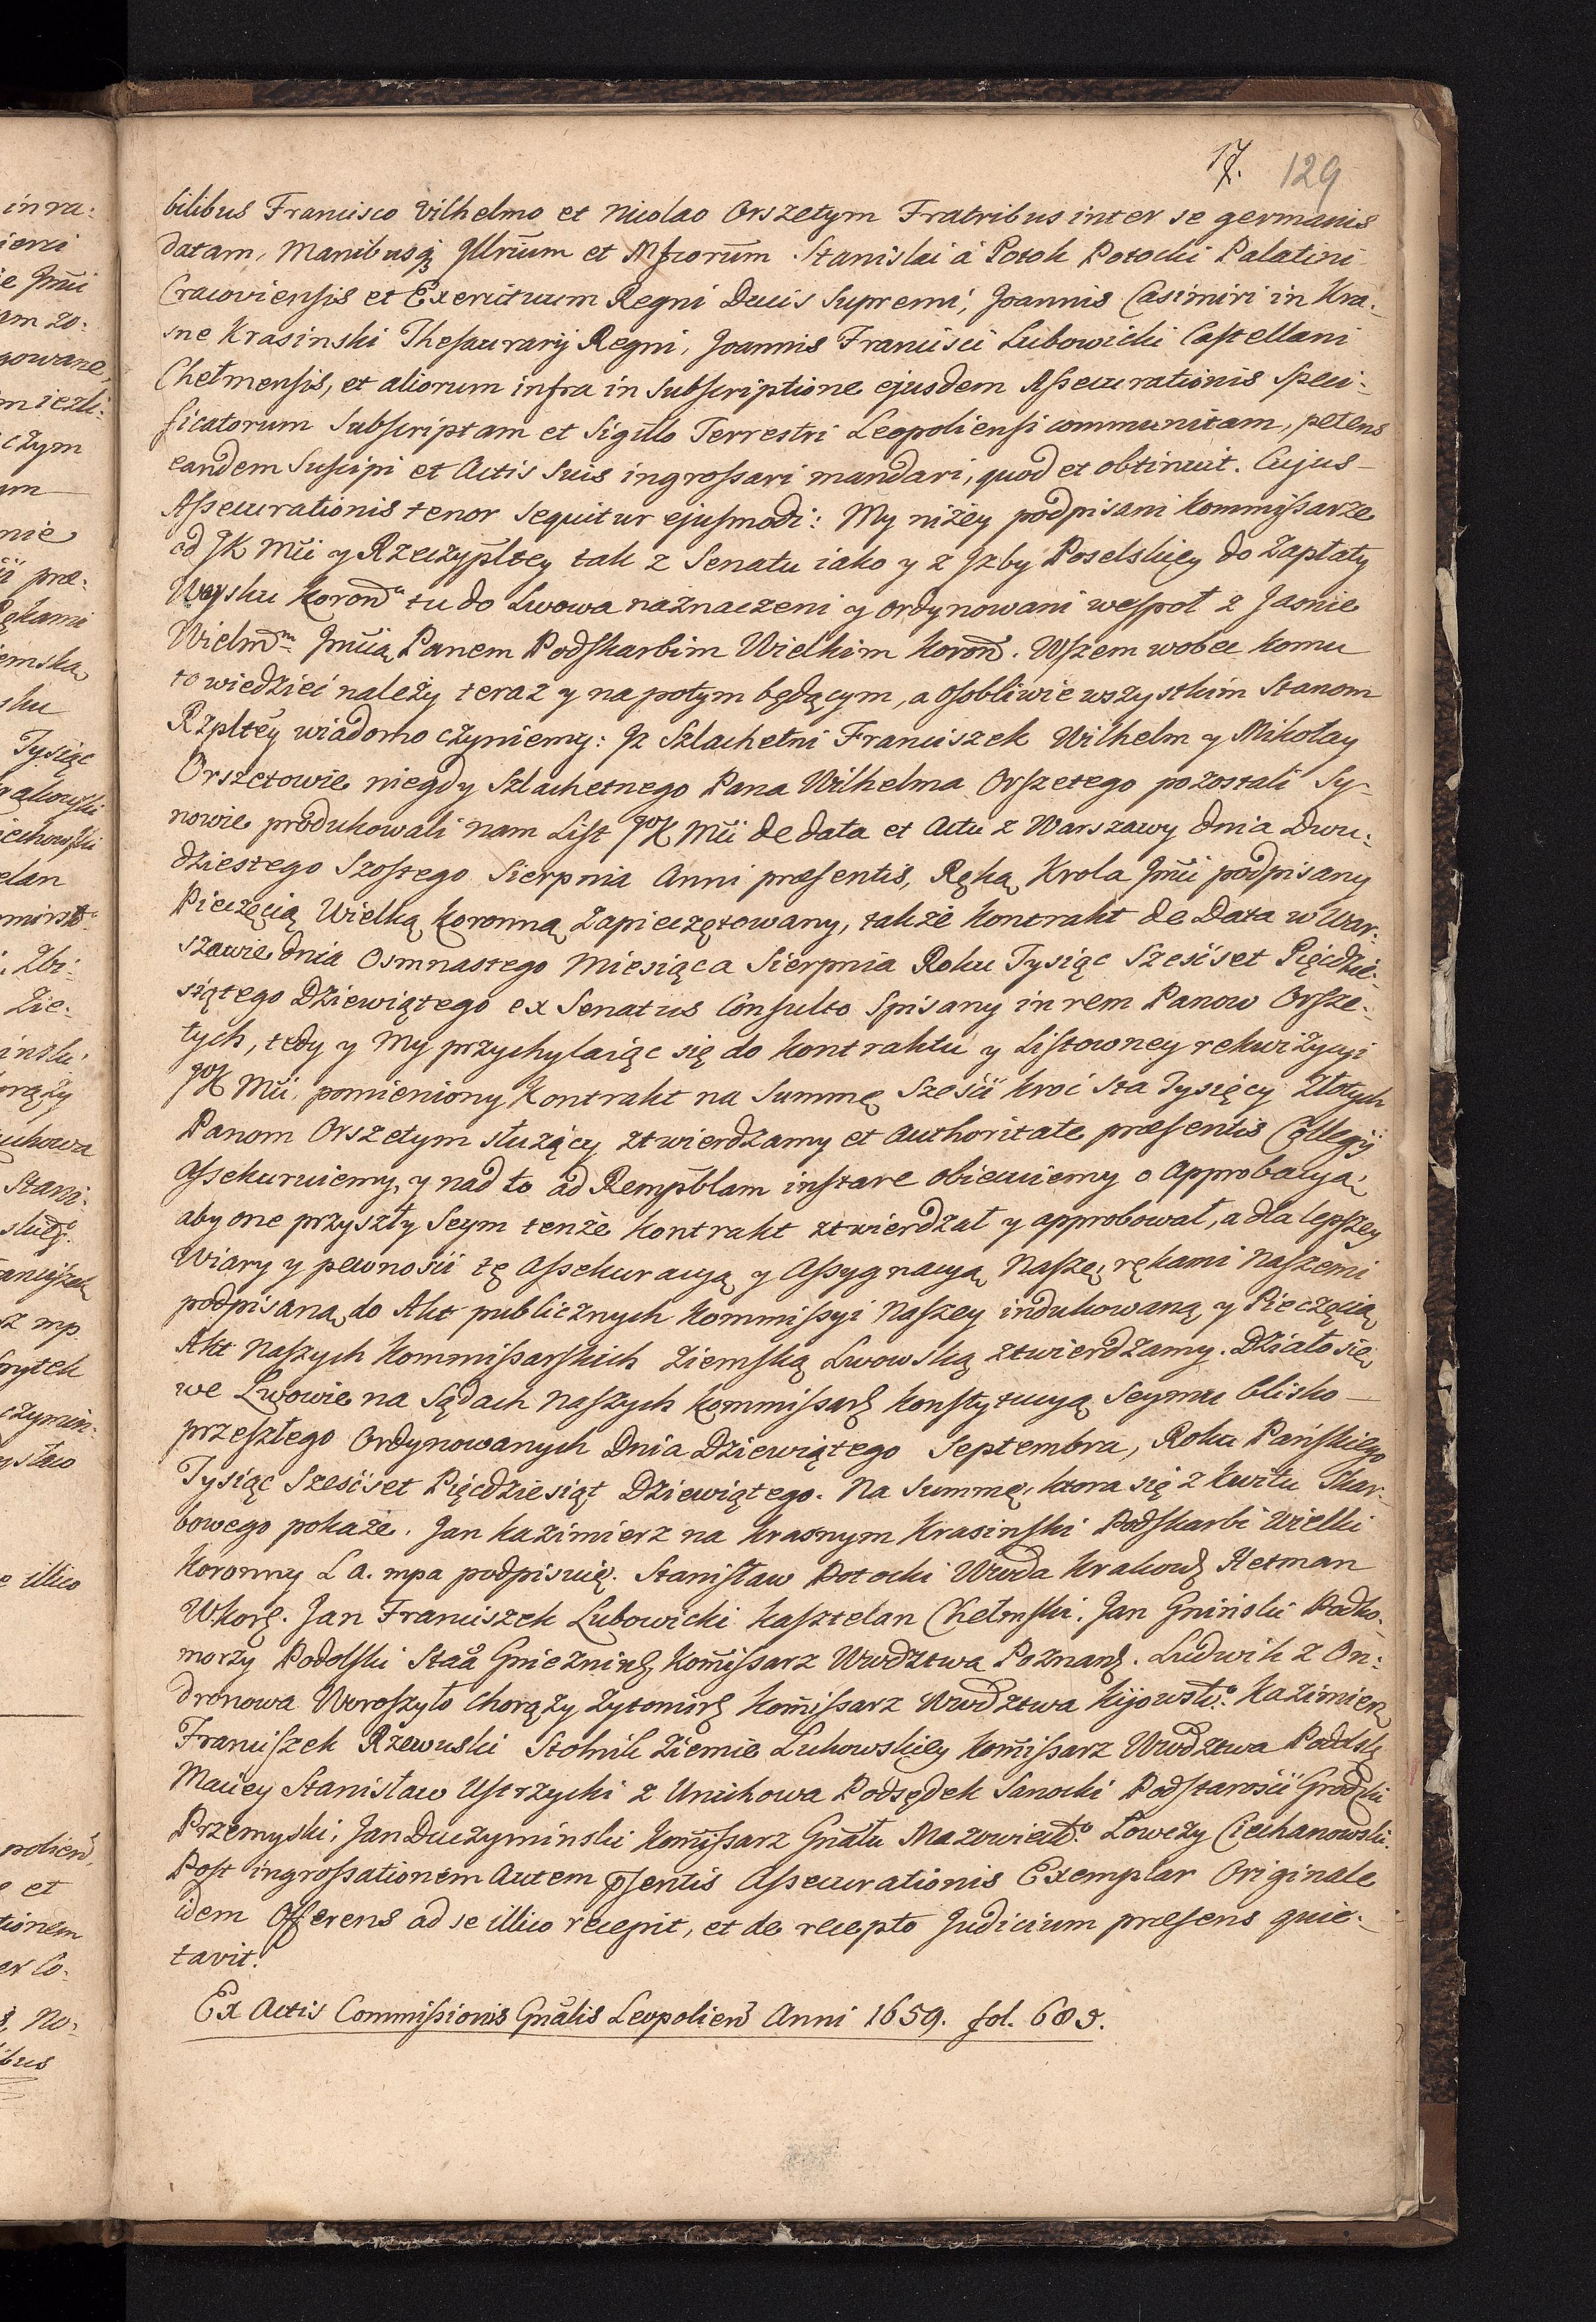 17. 129
bilibus Francisco Vilhelmo et Nicolao Orszetym Fratribus inter se germanis
datam, Manibusq; Jllrium et Mfcorum Stanislai á Potok Potocki Palatini
Cracoviensis et Exercituum Regni Ducis Supremi, Joannis Casimiri in Kra-
sne Krasinski Thesaurarij Regni, Joannis Francisci Lubowicki Castellani
Chełmensis, et aliorum infra in Subscriptione ejusdem Assecurationis speci-
ficatorum Subscriptam et Sigillo Terrestri Leopoliensi communitam, petens
eandem Suscipi et Actis Suis ingrossari mandari, quod et obtinuit. Cujus-
Assecurationis tenor sequitur ejusmodi: My niżey podpisani Kommissarze
od JK Mci y Rzeczypltey tak z Senatu iako y z Jzby Poselskiey do Zapłaty
Woysku Korond tu do Lwowa naznaczeni y ordynowani wespoł z Jasnie
Wielmm Jmcią Panem Podskarbim Wielkim Koron. Wszem wobec komu
to wiedzieć należy teraz y napotym będącym, a osobliwie wszystkim Stanom
Rzpltey wiadomo czyniemy: Jz Szlachetni Franciszek Wilhelm y Mikołay
Orszetowie niegdy Szlachetnego Pana Wilhelma Orszetego pozostali Sy-
nowie produkowali nam List JoK Mci de data et Actu z Warszawy dnia Dwu-
dziestego Szostego Sierpnia Anni praesentis, Ręką Krola Jmci podpisany
Pieczęcią Wielką Koronną Zapieczętowany, także Kontrakt de Data w War-
szawie dnia Osmnastego Miesiąca Sierpnia Roku Tysiąc Szesćset Pięćdzie-
siątego Dziewiątego ex Senatus Consulto Spisany in rem Panow Orsze-
tych, tedy y My przychylaiąc się do Kontraktu y Listowney rekwizycyi
JoK Mci, pomieniony Kontrakt na Summę Sześć kroć Sta Tysięcy Złotych
Panom Orszetym służący ztwierdzamy et Authoritate praesentis Collegij
Assekuruiemy, y nad to ad Rempblam instare obiecuiemy o Approbacyą,
aby one przyszły Seym tenże Kontrakt ztwierdzał y approbował, a dla lepszey
Wiary y pewności tę Assekuracyą y Assygnacyą Naszę, rękami Naszemi
podpisaną, do Akt publicznych Kommissyi Naszey indukowaną y Pieczęcią
Akt Naszych Kommissarskich Ziemską Lwowską ztwierdzamy. Działo się
we Lwowie na Sądach Naszych Kommissarś Konstytucyą Seymu blisko-
przeszłego Ordynowanych Dnia Dziewiątego Septembra, Roku Pańskiego
Tysiąc Szesćset Pięcdziesiąt Dziewiątego. Na Summę, ktora się z Kwitu Skar-
bowego pokaże. Jan Kazimierz na Krasnym Krasinski Podskarbi Wielki
Koronny L a. mpa podpisuię. Stanisław Potocki Wwda Krakowś Hetman
Wkorś. Jan Franciszek Lubowicki Kasztelan Chełmski. Jan Gniński Podko-
morzy Podolski Staa Gnieznińś Kommissarz Wwdztwa Poznanś. Ludwik z On-
dronowa Woroszyło Chorąży Zytomirś Kommissarz Wwdztwa Kijowsko. Kazimierz
Franciszek Rzewuski Stolnik Ziemie Lukowskiey Kommissarz Wwdztwa Podolsk
Maciey Stanisław Ustrzycki z Unichowa Podsędek Sanocki Podstarości Grodzki
Przemyski, Jan Duczyminski Kommissarz Gnału Mazowiecko. Łowczy Ciechanowski.
Post ingrossationem Autem psentis Assecurationis Exemplar Originale
idem Offerens ad se illico recepit, et de recepto Judicium praesens quie-
tavit.
Ex Actis Commissionis Gnalis Leopolien Anni 1659. fol. 685.